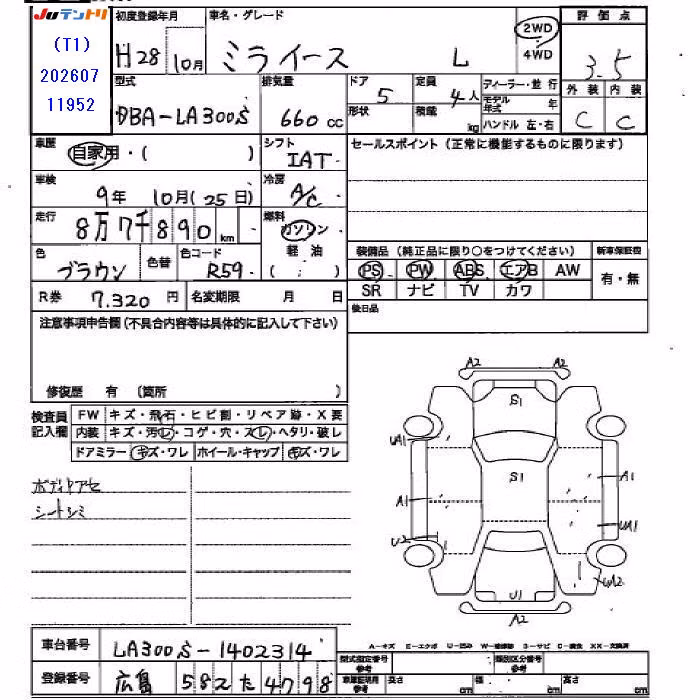 Juテントリ
(T1)
202607
11952
初度登録年月
H28 10月
車名・グレード
ミライース L
2WD
4WD
評価点
3.5
外装 内装
C C
型式
DBA-LA300S
排気量
660 cc
ドア
5
形状
定員
4人
積載
kg
ディーラー・並行
モデル年式 年
ハンドル 左・右
車歴
自家用・( )
シフト
IAT
セールスポイント(正常に機能するものに限ります)
車検
9年 10月(25日)
冷房
A/C
走行
8万7千890km
燃料
ガソリン
軽油
( : )
色
ブラウン
色替
色コード
R59
装備品(純正品に限り○をつけてください)
新車保証書
PS PW ABS エアB AW
SR ナビ TV カワ
有・無
R券 7.320円
名変期限 月 日
後日品
注意事項申告欄(不具合内容等は具体的に記入して下さい)
修復歴 有 (箇所 )
検査員
記入欄
FW キズ・飛石・ヒビ割・リペア跡・X要
内装 キズ・汚レ・コゲ・穴・スレ・ヘタリ・破レ
ドアミラー キズ・ワレ ホイール・キャップ キズ・ワレ
ボディヤケセ
シートシミ
A2 A2
S1
UA1
S1
A1 A1
UA1
U2
UA2
U1
A2
A-キズ E-エクボ U-凹み W-補修跡 S-サビ C-腐食 XX-交換済
車台番号 LA300S-1402314
登録番号 広島 582 た 4798
型式指定番号
参考
類別区分番号
参考
車庫証明用
参考
長さ cm 幅 cm 高さ cm